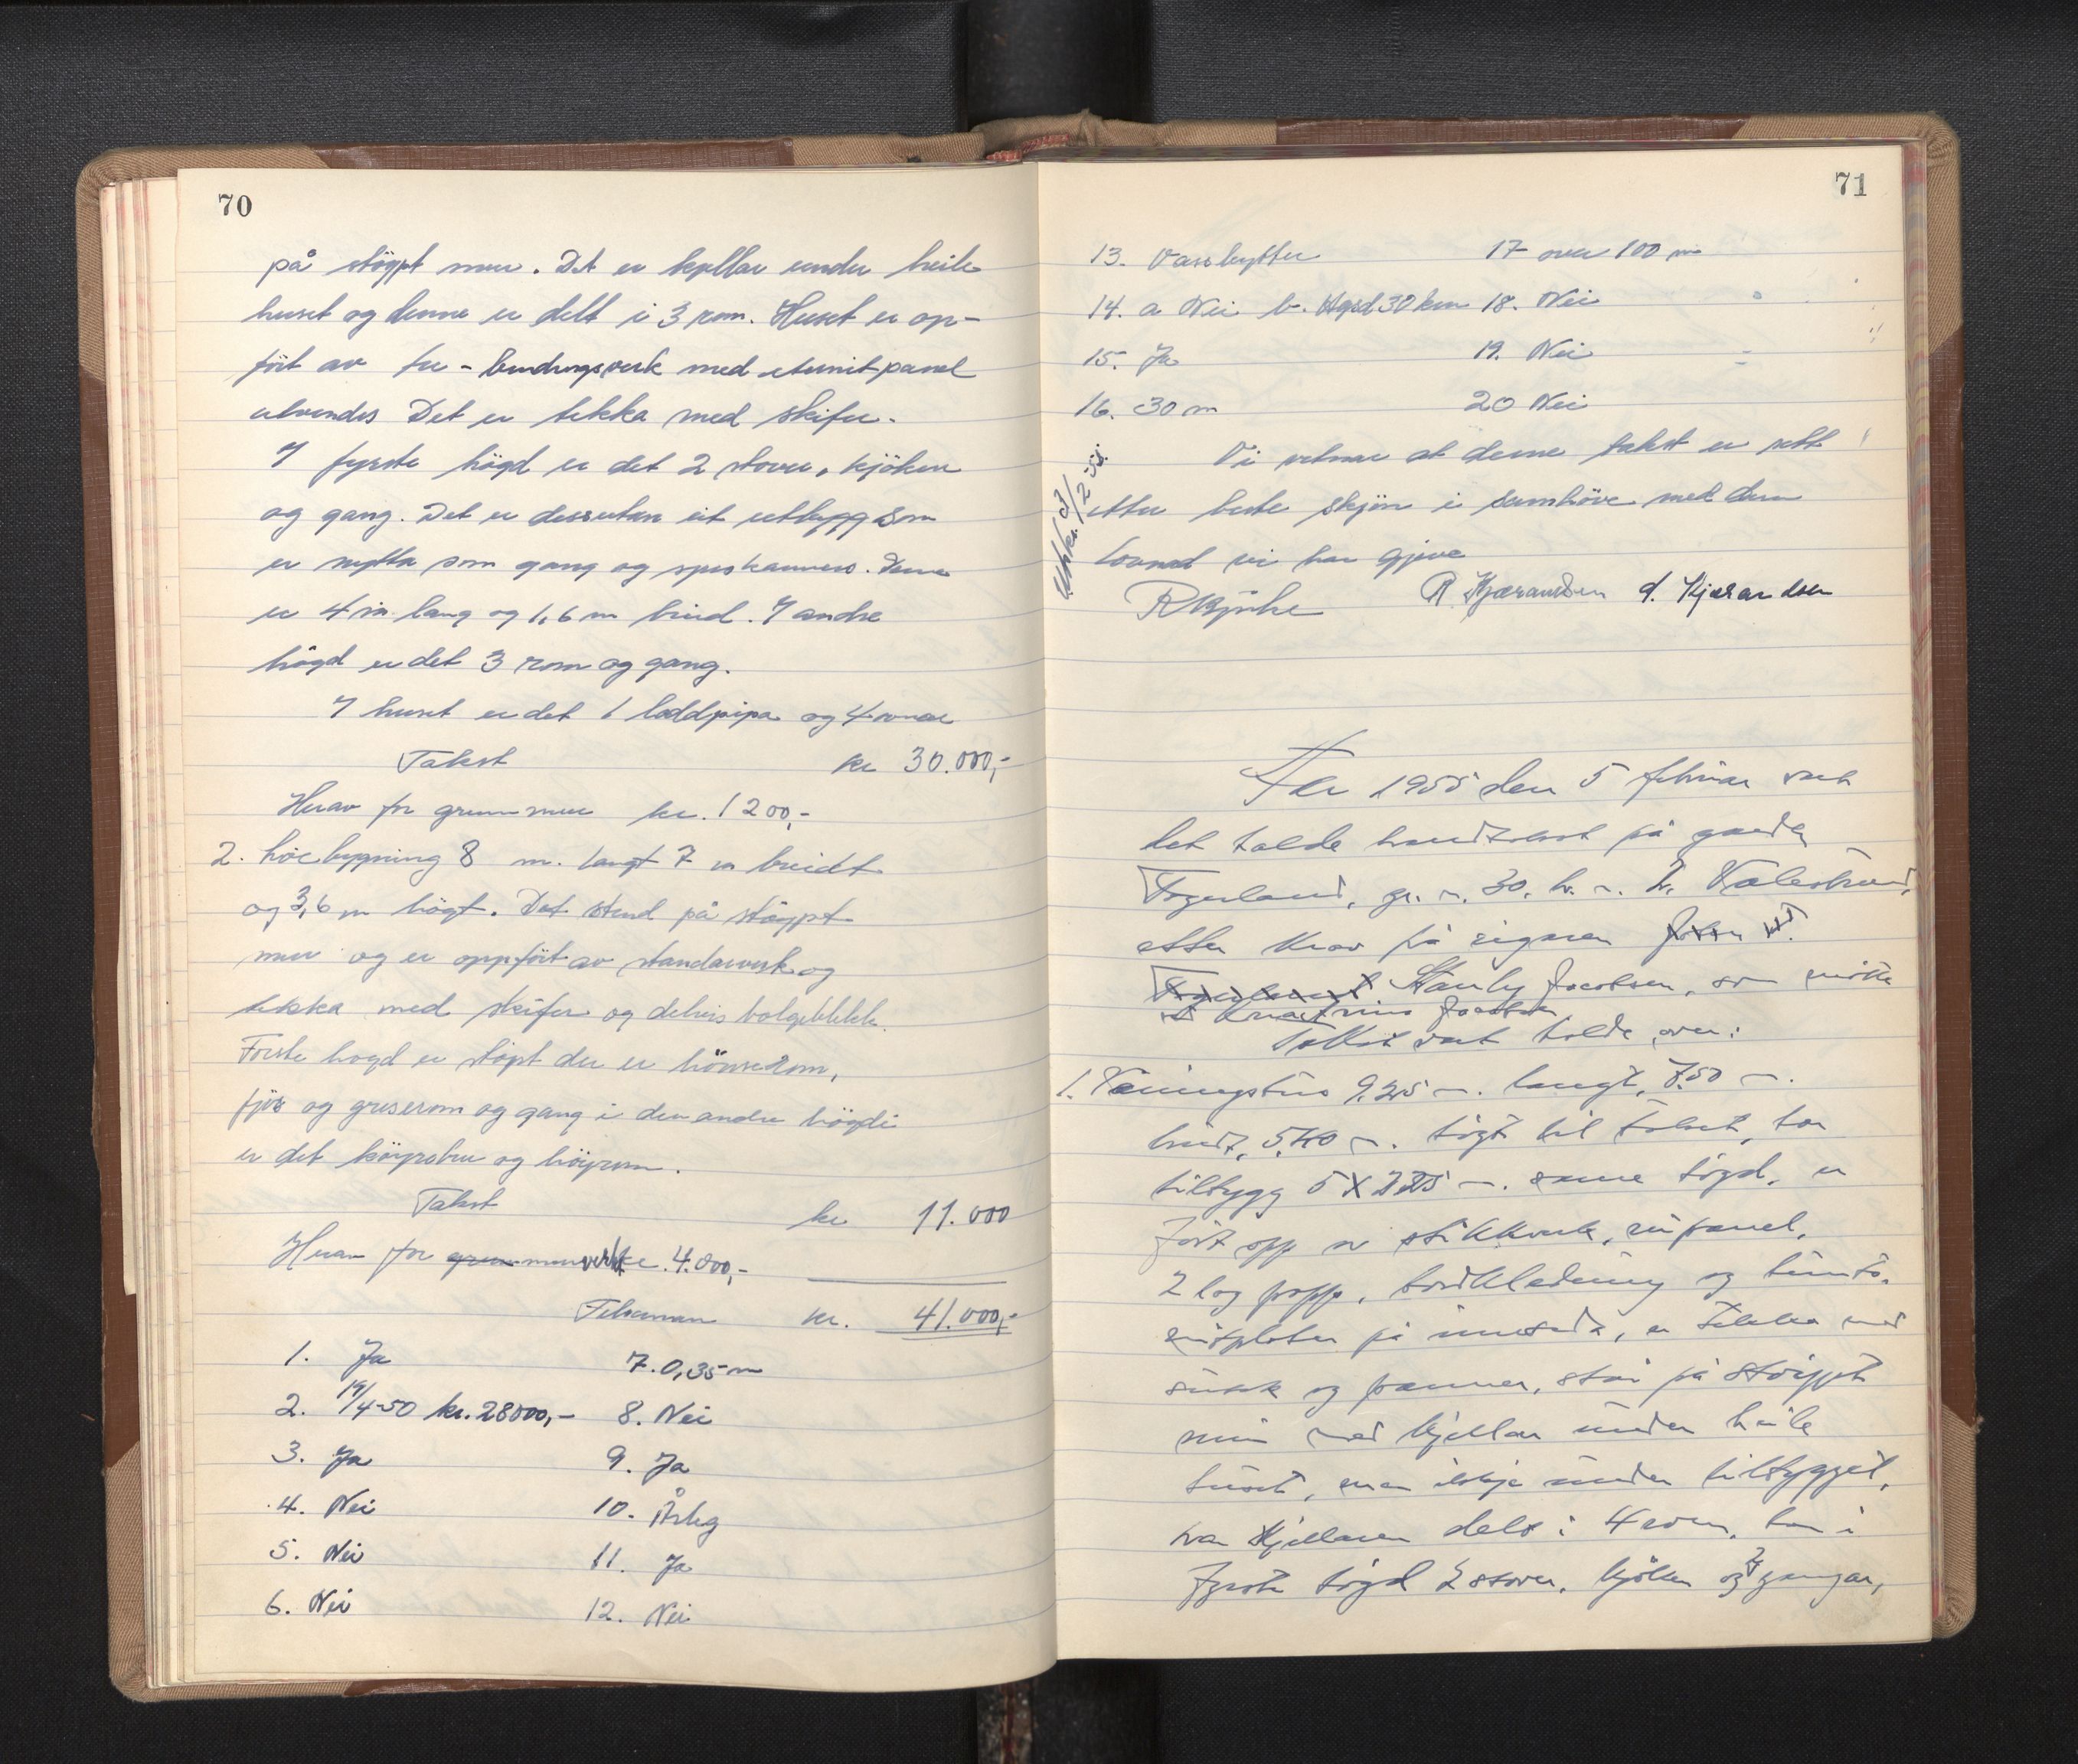 70
på støypt mur. Det er kjellar under heile
huset og denne er delt i 3 rom. Huset er op-
ført av tre-bindingsverk med eternitpanel
utvendes Det er tekka med skifer.
I fyrste høgd er det 2 stover, kjøken
og gang. Det er dessutan eit utbygg som
er nytta som gang og spiskammers. Denne
er 4 m lang og 1,6 m breid. I andre
høgd er det 3 rom og gang.
I huset er det 1 loddpipa og 4 omnar
Takst kr 30.000,-
Herav for grunnmur kr. 1200,-
2. høebygning 8 m. langt 7 m breidt
og 3,6 m høgt. Det stend på støypt
mur og er oppført av standarverk og
tekka med skifer og delvis bølgeblekk.
Første høgd er støpt der er hönserom,
fjös og griserom og gang i den andre høgdi
er det köyrebru og höyrom.
Takst kr 11.000
Herav for murverk kr. 4.000,-
Tilsaman kr. 41.000,-
1. Ja 7. 0,35 m
2. 19/4-50 kr. 28000,- 8. Nei
3. Ja 9. Ja
4. Nei 10. Årleg
5. Nei 11. Ja
6. Nei 12. Nei
71
13. Vassbytter 17 over 100 m
14. a Nei b. 30 km 18. Nei
15. Ja 19. Nei
16. 30 m 20 Nei
Vi vitnar at denne takst er sett
etter beste skjön i samhöve med den
lovnad vi har gjeve
R Kjærandsen d. Kjærandsen
År 1955 den 5 februar vart
det halde branntakst på garden
Fagerland, gr. n. 30, br. n. 2, Valestrand,
etter krav frå eigaren
Stanly Jacobsen, som møtte
Takst vart halde over:
1. Våningshus 9,25 m. langt, 7,50 m.
breidt, 5,40 m. høgt til halvt, har
tilbygg 5 X m. same høgd, er
ført opp av stikkverk, rupanel,
2 lag papp, bordkledning og
plater på innsida, er tekka med
og panner, står på støypt
mur med kjellar under heile
huset, men ikkje under tilbygget,
har kjellaren delt i 4 rom, har i
fyrste høgd 2 stover, kjøken og 2 gangar,